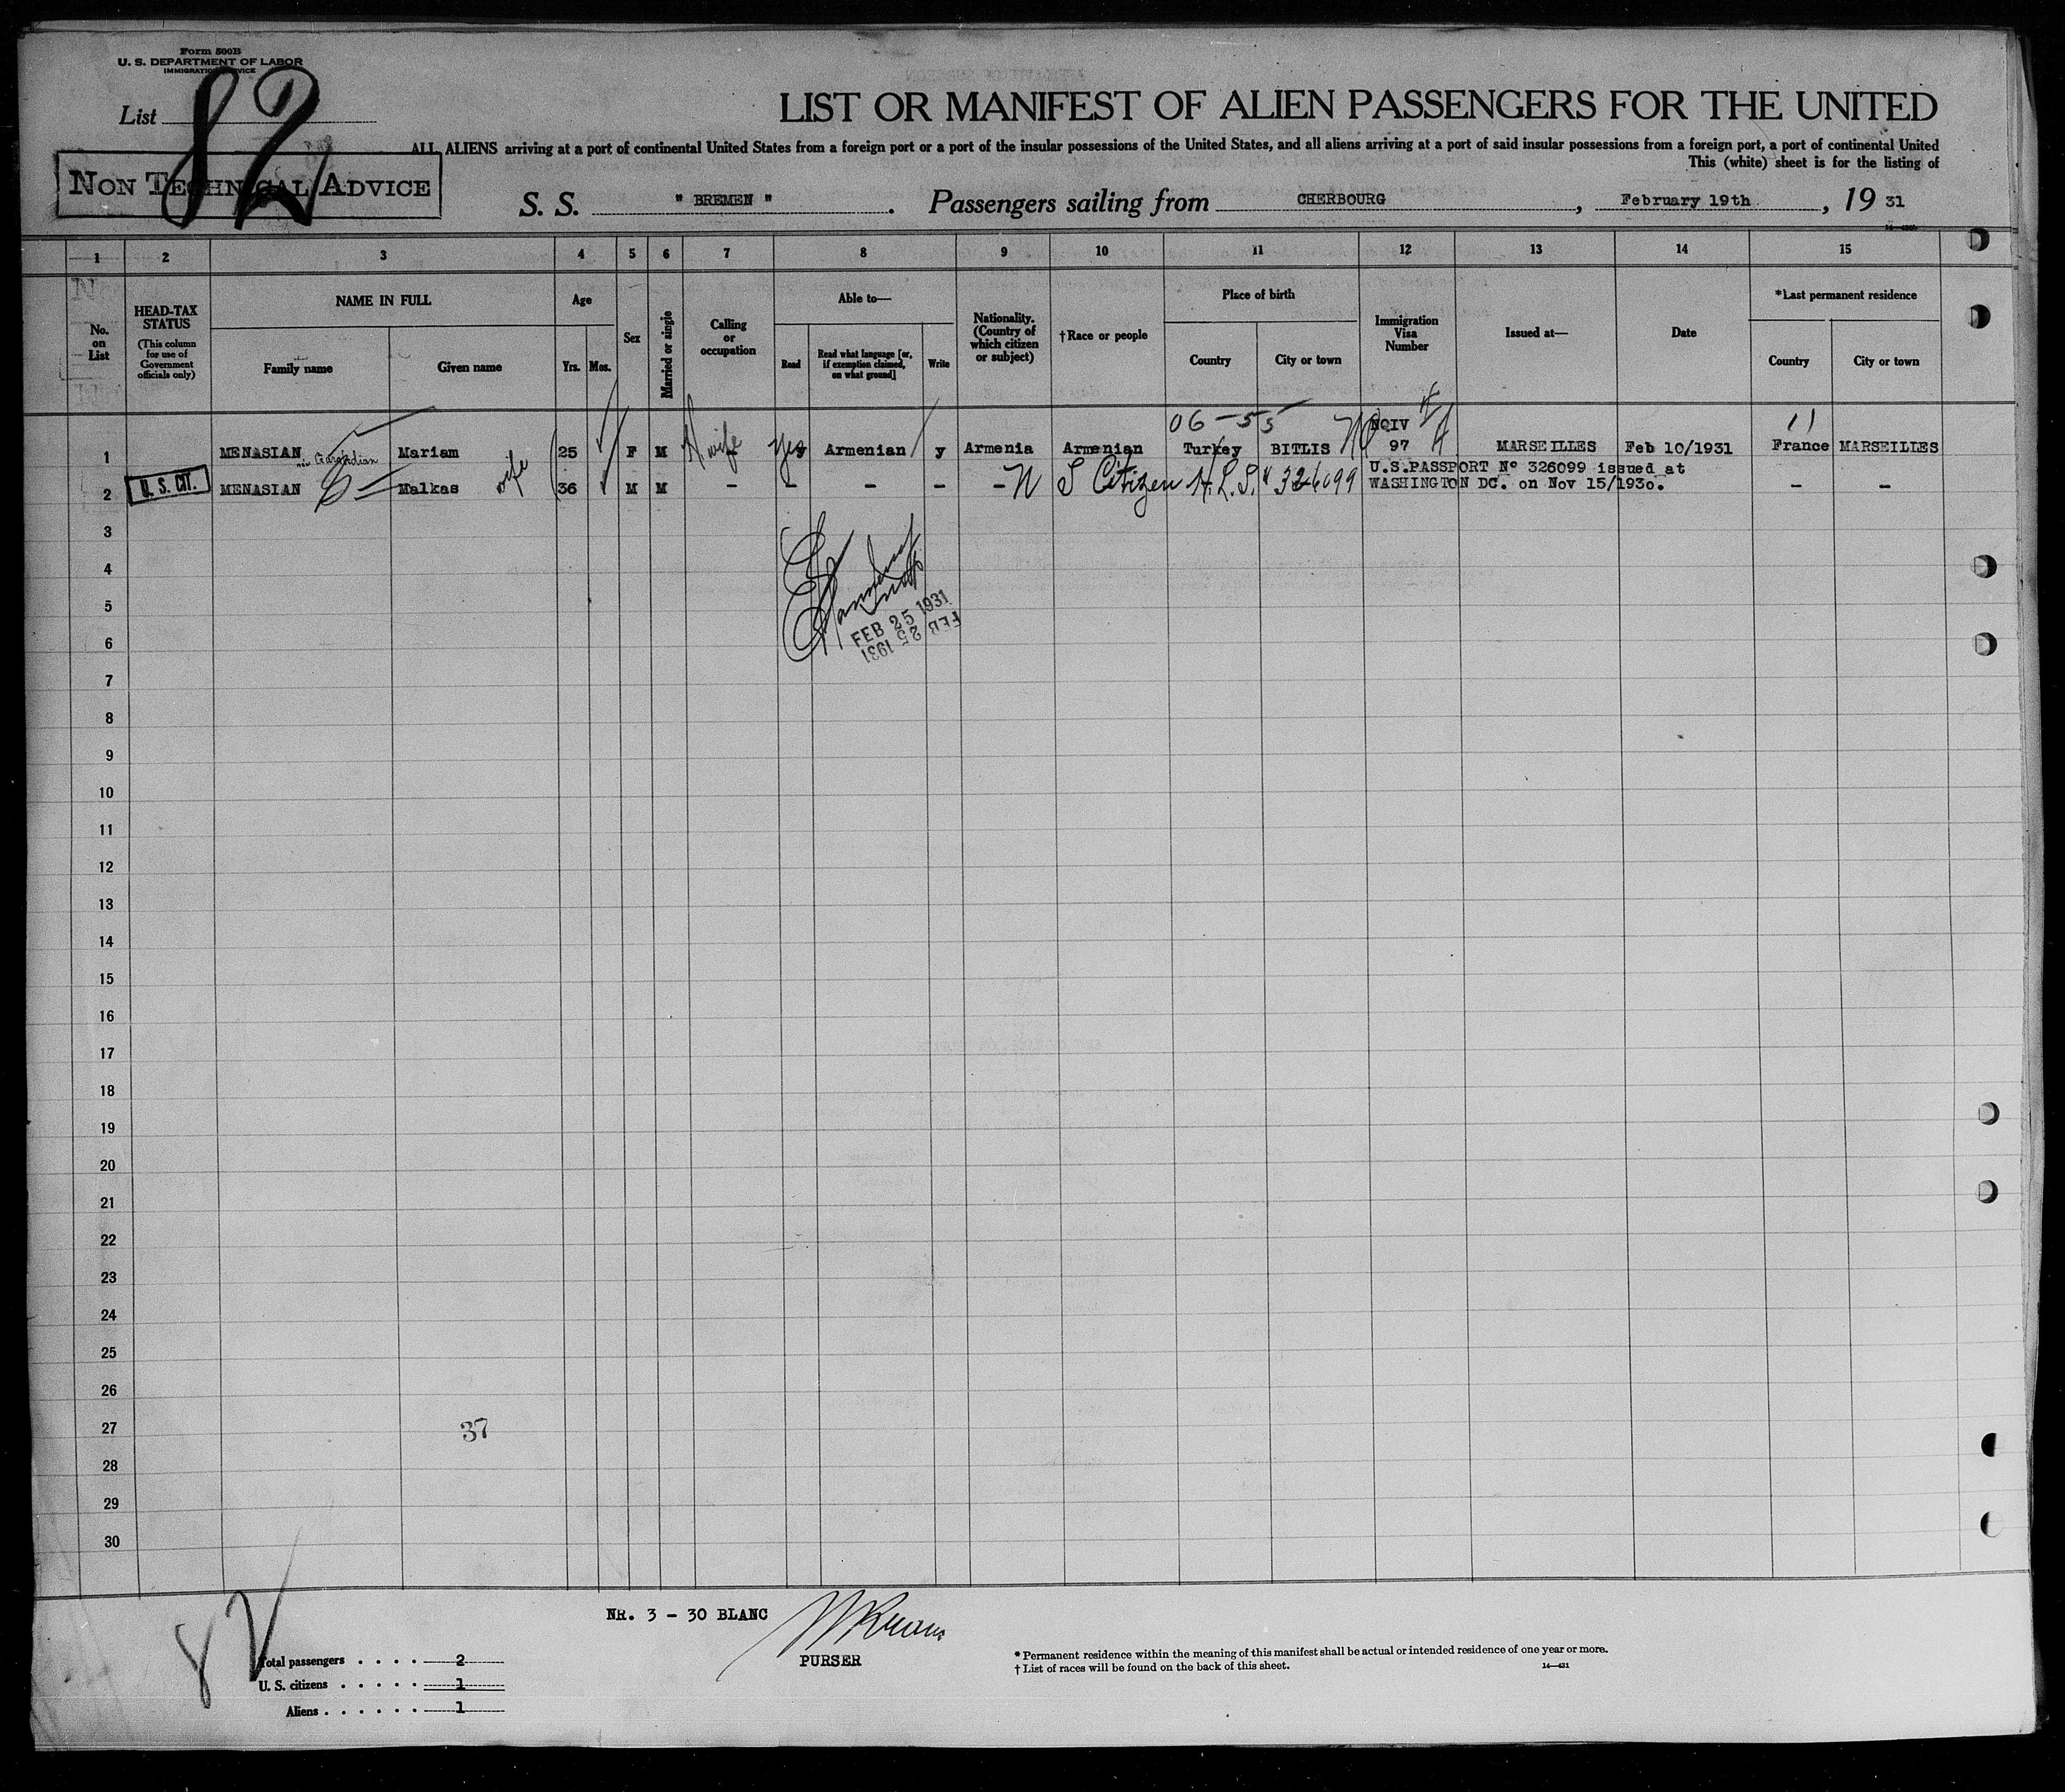 Form 500B
U. S. DEPARTMENT OF LABOR
IMMIGRATION SERVICE
List 82
NON TECHNICAL ADVICE
LIST OR MANIFEST OF ALIEN PASSENGERS FOR THE UNITED
ALL ALIENS arriving at a port of continental United States from a foreign port or a port of the insular possessions of the United States, and all aliens arriving at a port of said insular possessions from a foreign port, a port of continental United
This (white) sheet is for the listing of
S. S. " BREMEN " . Passengers sailing from CHERBOURG , February 19th , 19 31
1 2 3 4 5 6 7 8 9 10 11 12 13 14 15
No. on List
HEAD-TAX STATUS
(This column for use of Government officials only)
NAME IN FULL
Family name
Given name
Age
Yrs.
Mos.
Sex
Married or single
Calling or occupation
Able to—
Read
Read what language [or, if exemption claimed, on what ground]
Write
Nationality. (Country of which citizen or subject)
†Race or people
Place of birth
Country
City or town
Immigration Visa Number
Issued at—
Date
*Last permanent residence
Country
City or town
06-55 NQIV 11
1 MENASIAN Mariam 25 F M H.wife yes Armenian y Armenia Armenian Turkey BITLIS 97 MARSEILLES Feb 10/1931 France MARSEILLES
2 U. S. CIT. MENASIAN Malkas wife 36 M M – – – – – U S Citizen 326099 U.S.PASSPORT Nº 326099 issued at – –
WASHINGTON DC. on Nov 15/1930.
3
4
5
6
FEB 25 1931
FEB 25 1931
7
8
9
10
11
12
13
14
15
16
17
18
19
20
21
22
23
24
25
26
27 37
28
29
30
82
NR. 3 - 30 BLANC
PURSER
Total passengers . . . . 2
U. S. citizens . . . . . 1
Aliens . . . . . . 1
* Permanent residence within the meaning of this manifest shall be actual or intended residence of one year or more.
† List of races will be found on the back of this sheet.
14—431